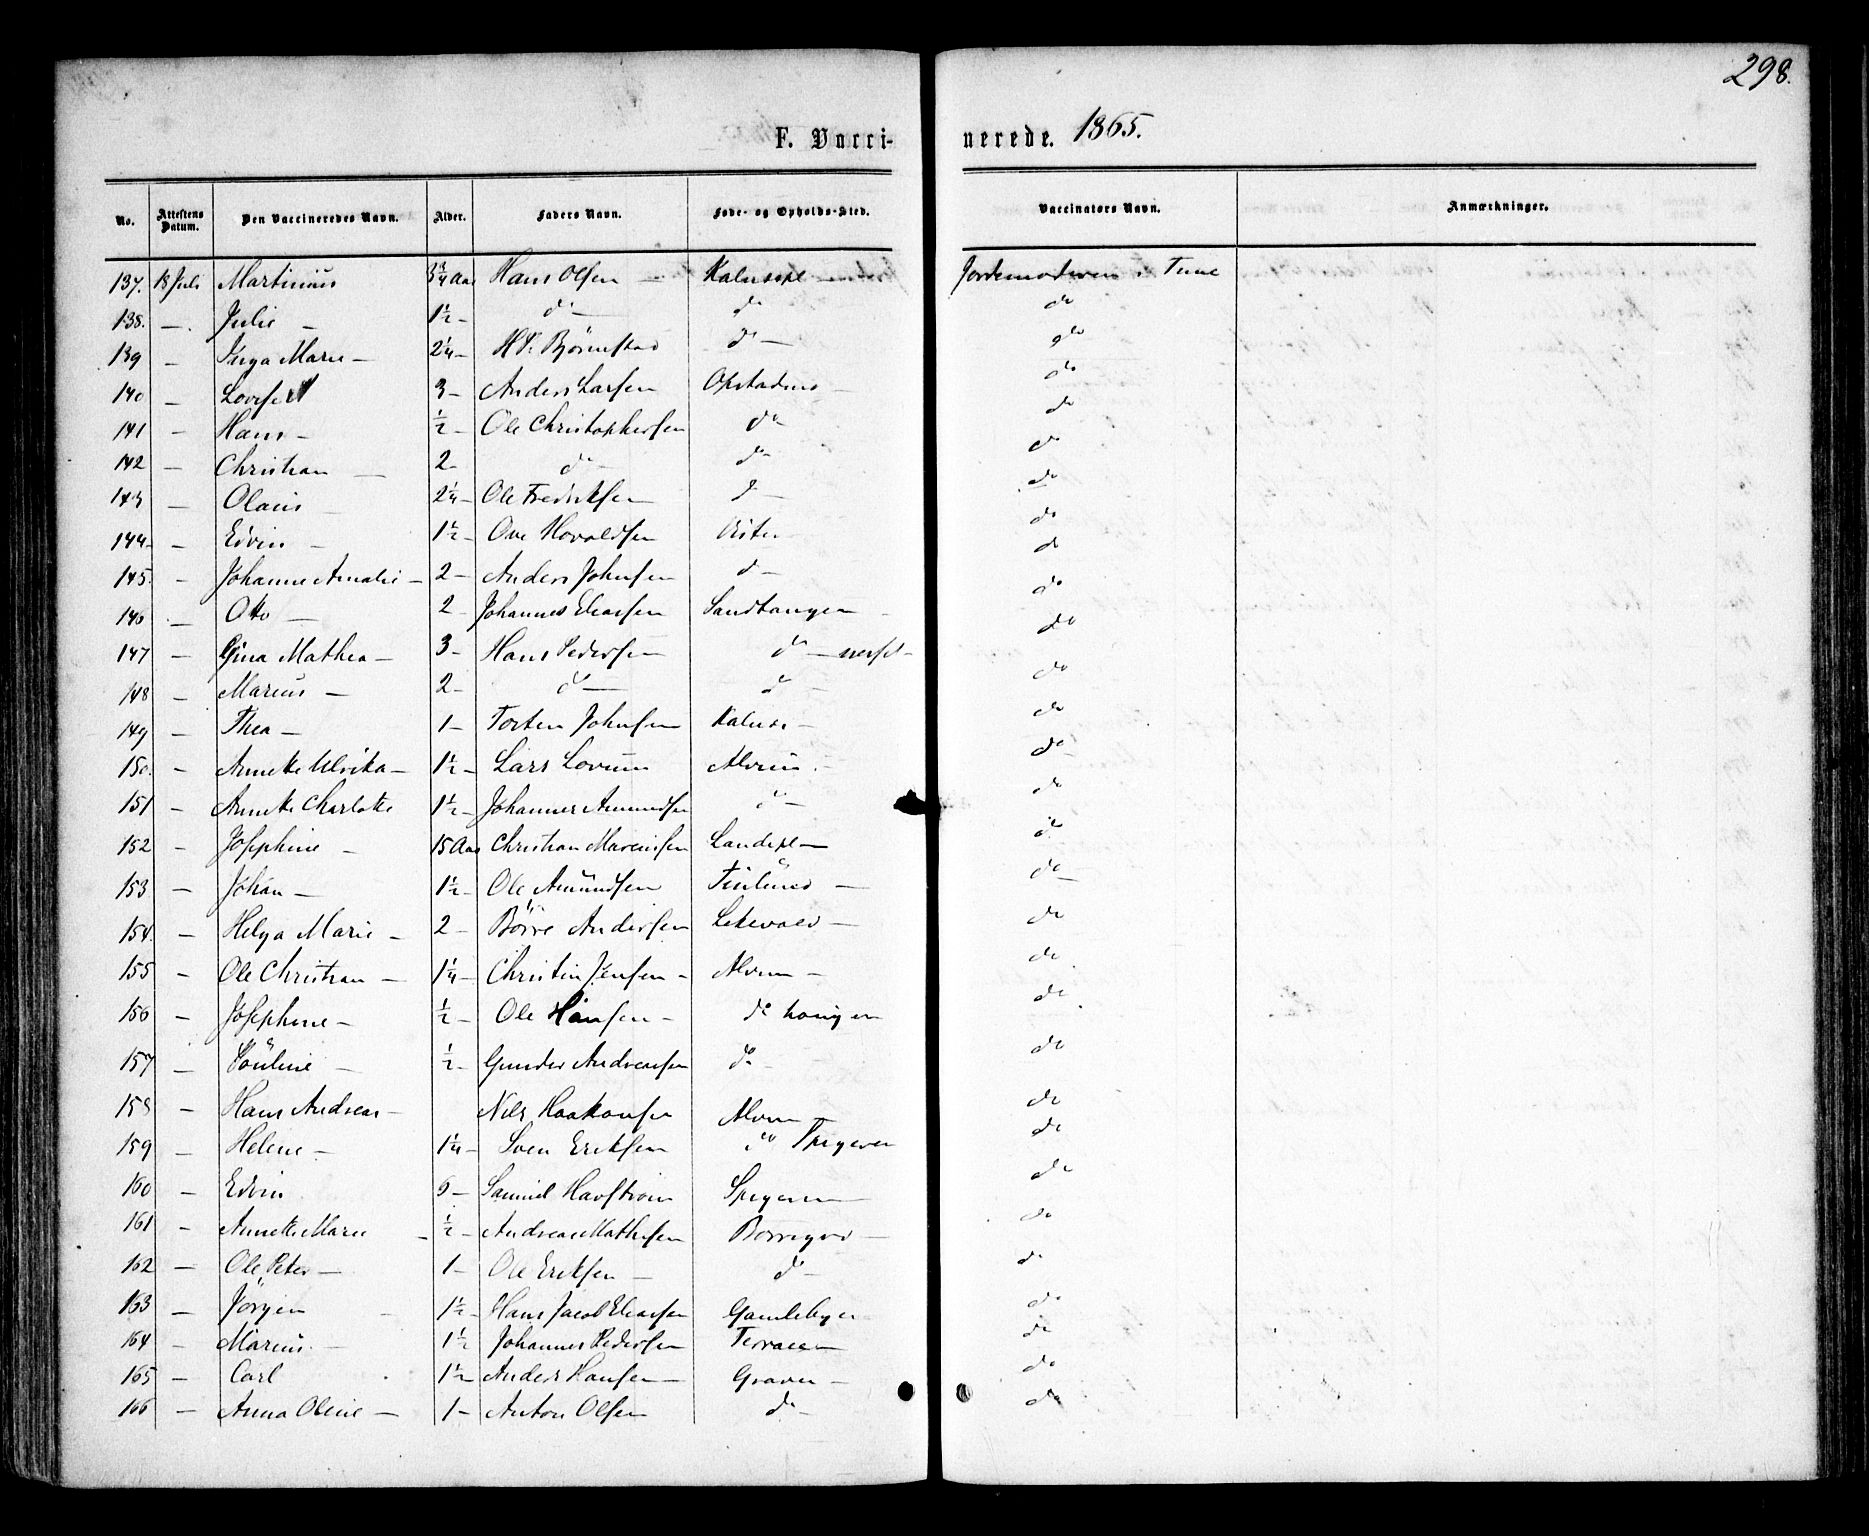 298.
F. Vacci-nerede. 1865.
No. Attestens Datum. Den Vaccineredes Navn. Alder. Faders Navn. Føde- og Opholds-Sted. Vaccinators Navn. Anmærkninger.
137. 18 Juli Martinius 3 3/4 Aar Hans Olsen — Jordemoderen i Tune
138. — Julie — 1 1/2 — do — do do
139 — Inga Marie — 2 1/4 — Bjørnstad do — do
140 — 3 — Anders Larsen do
141 — Hans — 1/2 — Ole Christophersen do do
142 — Christian — 2 — do — do do
143 — Olaus — 2 1/4 — Ole Fredriksen do — do
144 — Edvin — 1 1/2 — Ove Hovaldsen do
145. — Johanne Amalie — 2 — Anders Johnsen do — do
146 — Otto — 2 — Johannes Eliassen Sandtangen — do
147 — Gina Mathea — 3 — Hans Pedersen do — do
148 — Marius — 2 — do — do — do
149 — Thea — 1 — Torsten Johnsen — do
150. — Annette Ulrika — 1 1/2 — Lars Alvim — do
151 — Annette Charlotte 1 1/2 — Johannes Amundsen do — do
152 — Josephine — 15 Aar Christian do
153 — Johan — 1 1/2 — Ole Amundsen — do
154. — Helga Marie — 2 — Børre Andersen Lekevold — do
155 — Ole Christian — 1 1/4 — Christin Jensen — Alvim — do
156 — Josephine — 1/2 — Ole Hansen — do do
157 — Pauline — 1/2 — Gunder Andreassen do — do
158 — Hans Andreas — Nils Haakonsen Alvim do
159 — Helene — 1 1/4 — Sven Eriksen do Spigeren do
160 — Edvin 6 — Samuel Spigeren — do
161 — Annette Marie — 1/2 — Andreas Mathisen Borregård — do
162 — Ole Peter — 1 — Ole Eriksen — do — do
163 — Jörgen — 1 1/2 — Hans Jacob Eliassen Gamlebyen do
164 — Marius — 1 1/2 Johannes Pedersen do
165 — Carl 1 1/2 — Anders Hansen — — do
166 — Anna Oline — 1 — Anton Olsen do — do